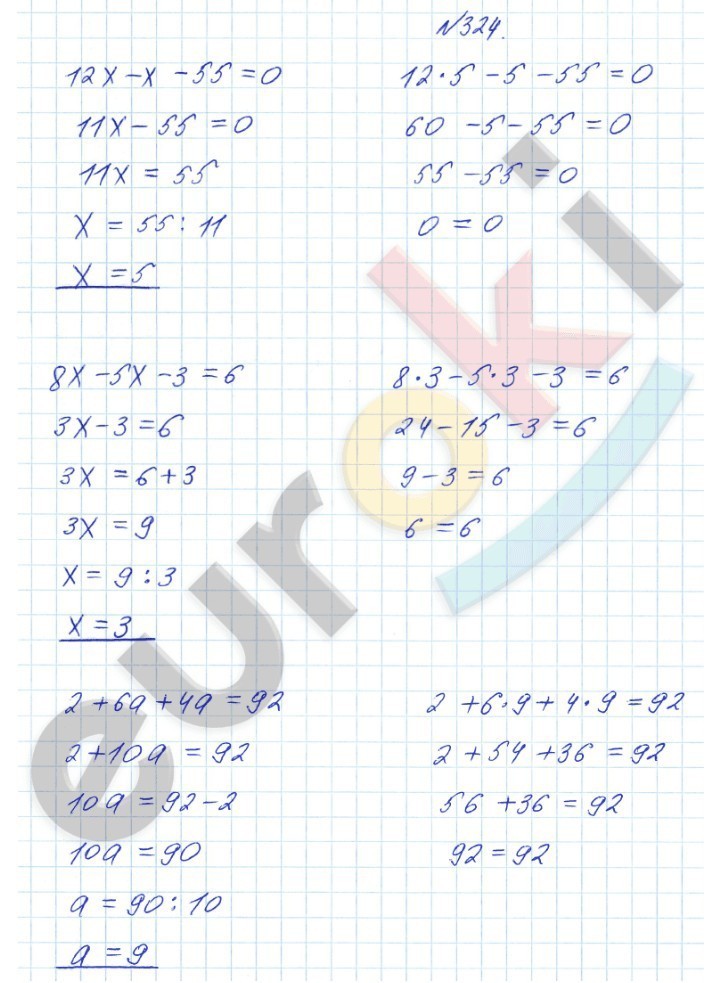 №324.
12x - x - 55 = 0
11x - 55 = 0
11x = 55
x = 55 : 11
x = 5
12·5 - 5 - 55 = 0
60 - 5 - 55 = 0
55 - 55 = 0
0 = 0
8x - 5x - 3 = 6
3x - 3 = 6
3x = 6 + 3
3x = 9
x = 9 : 3
x = 3
8·3 - 5·3 - 3 = 6
24 - 15 - 3 = 6
9 - 3 = 6
6 = 6
2 + 6a + 4a = 92
2 + 10a = 92
10a = 92 - 2
10a = 90
a = 90 : 10
a = 9
2 + 6·9 + 4·9 = 92
2 + 54 + 36 = 92
56 + 36 = 92
92 = 92
euroki